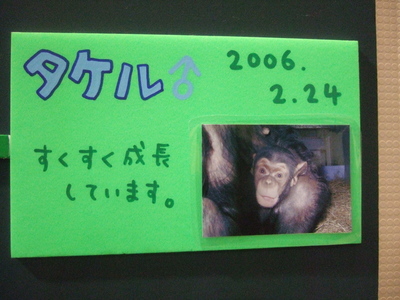 タケル♂
2006.
2.24
すくすく成長
しています。